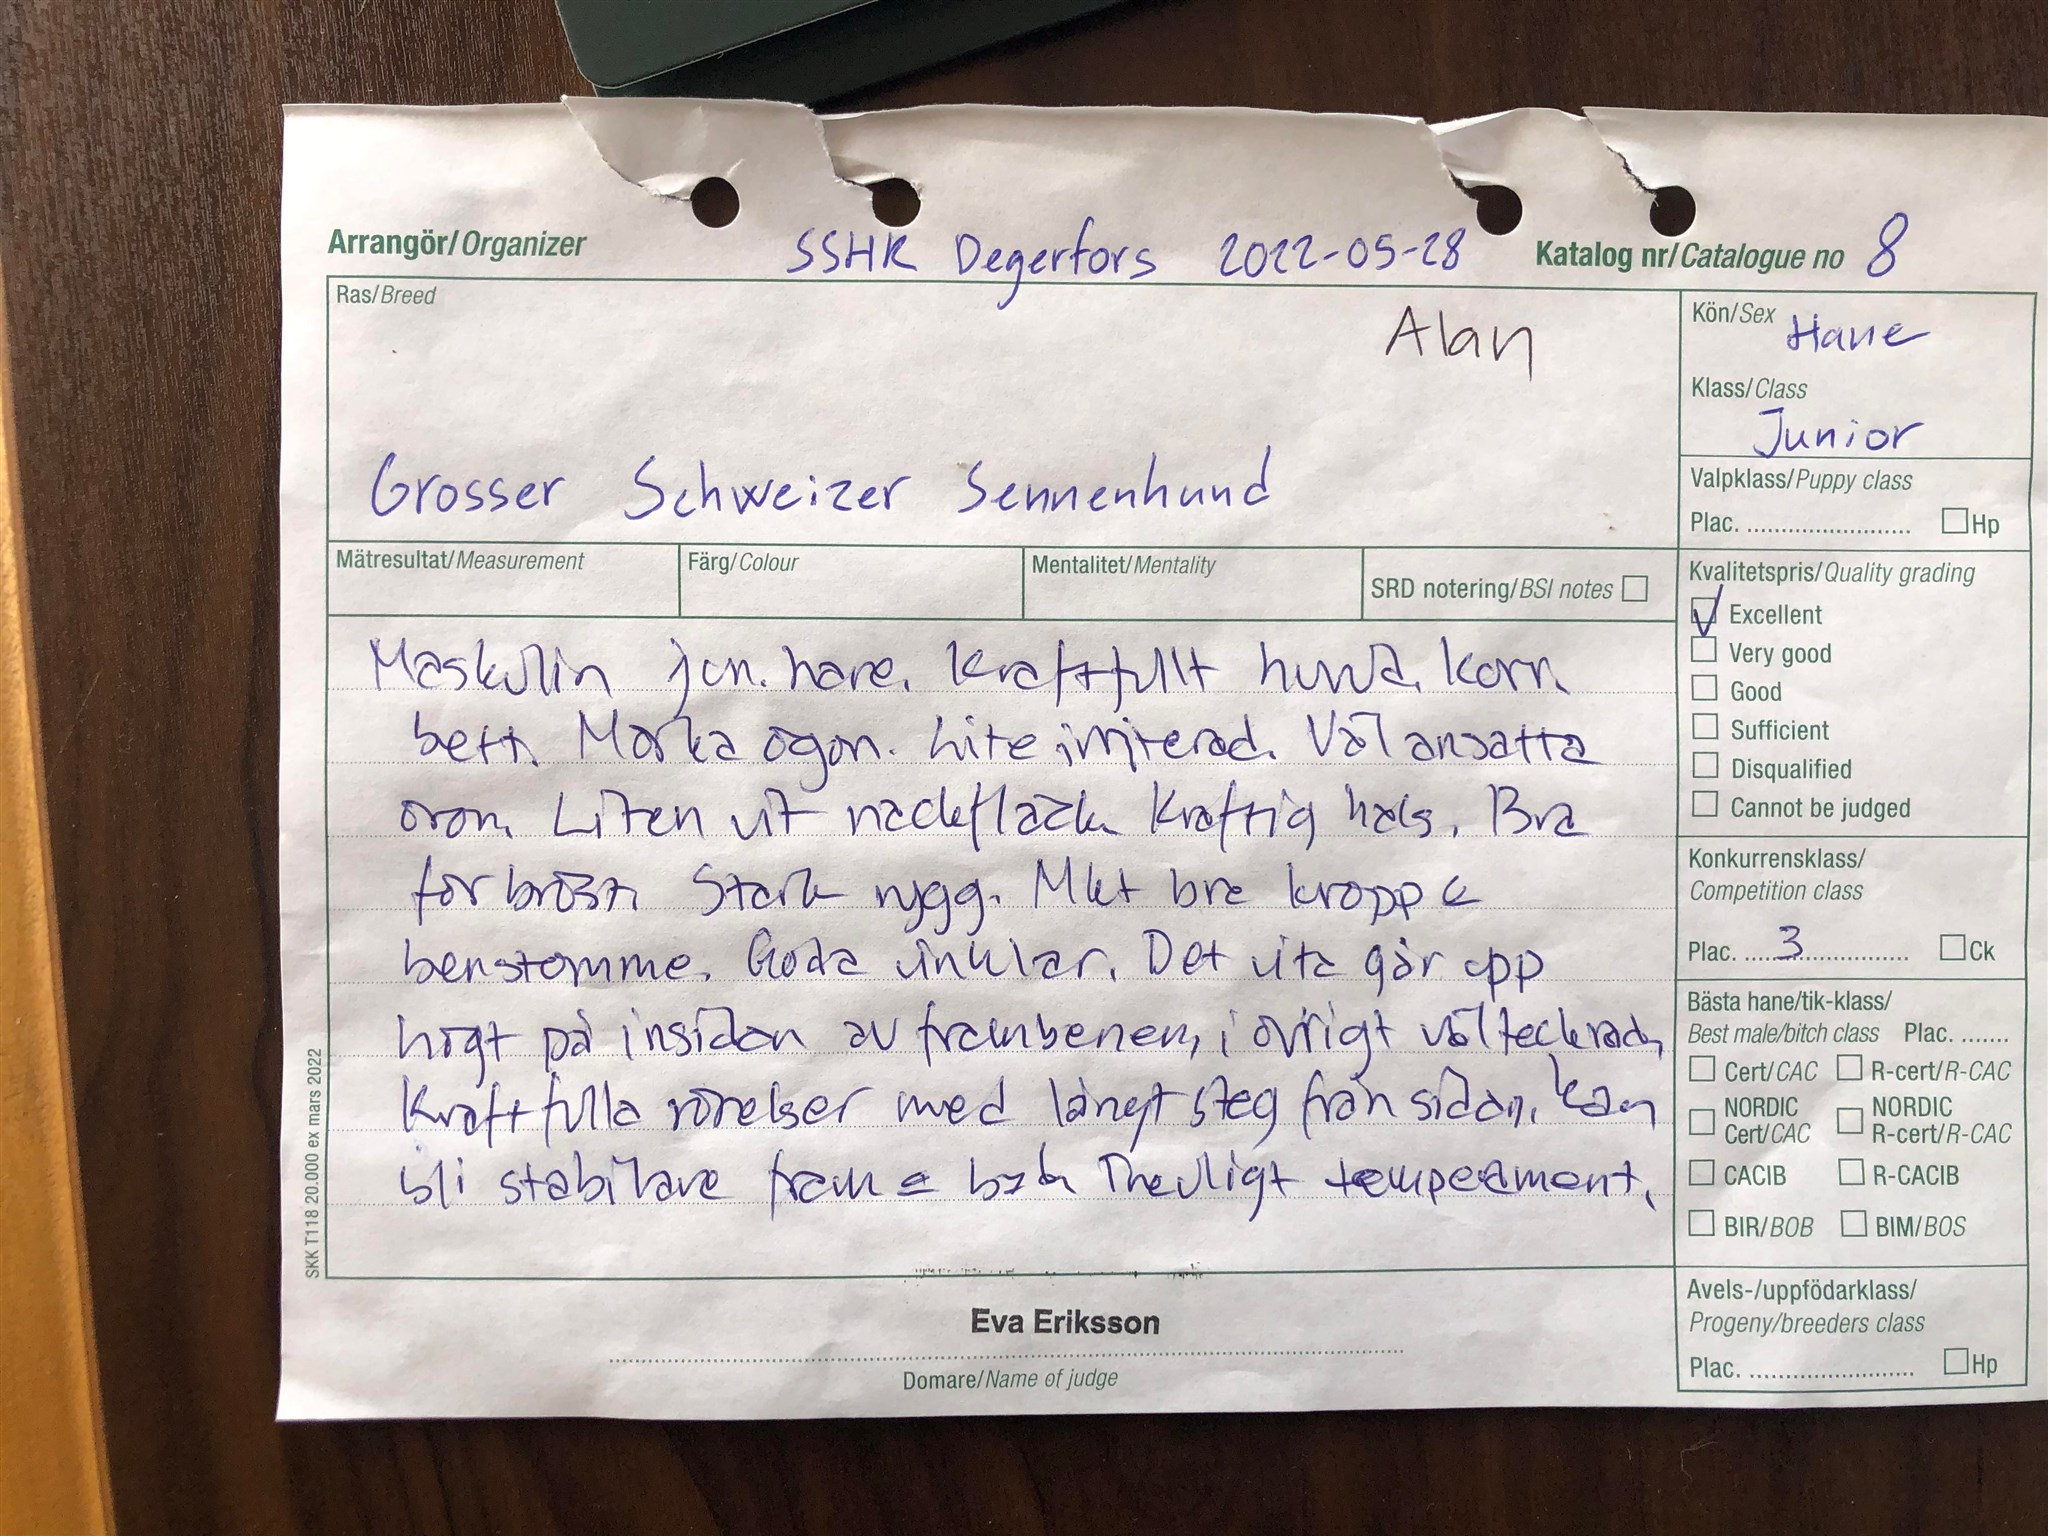 Arrangör/Organizer SSHK Degerfors 2022-05-28 Katalog nr/Catalogue no 8
Ras/Breed
Alan
Grosser Schweizer Sennenhund
Kön/Sex Hane
Klass/Class
Junior
Valpklass/Puppy class
Plac. ........................... Hp
Mätresultat/Measurement Färg/Colour Mentalitet/Mentality SRD notering/BSI notes
Kvalitetspris/Quality grading
Excellent
Very good
Good
Sufficient
Disqualified
Cannot be judged
Maskulin jun. hane. Kraftfullt huvud. Korr.
bett. Mörka ögon. Lite irriterad. Väl ansatta
öron. Liten vit nackfläck. Kraftig hals. Bra
förbröst. Stark rygg. Mkt bra kropp &
benstomme. Goda vinklar. Det vita går upp
högt på insidan av frambenen, i övrigt vältecknad.
Kraftfulla rörelser med långt steg från sidan. Kan
bli stabilare fram & bak. Trevligt temperament.
Konkurrensklass/
Competition class
Plac. ....3................ Ck
Bästa hane/tik-klass/
Best male/bitch class Plac. .......
Cert/CAC R-cert/R-CAC
NORDIC Cert/CAC NORDIC R-cert/R-CAC
CACIB R-CACIB
BIR/BOB BIM/BOS
Avels-/uppfödarklass/
Progeny/breeders class
Plac. ........................... Hp
SKK T118 20.000 ex mars 2022
Eva Eriksson
Domare/Name of judge